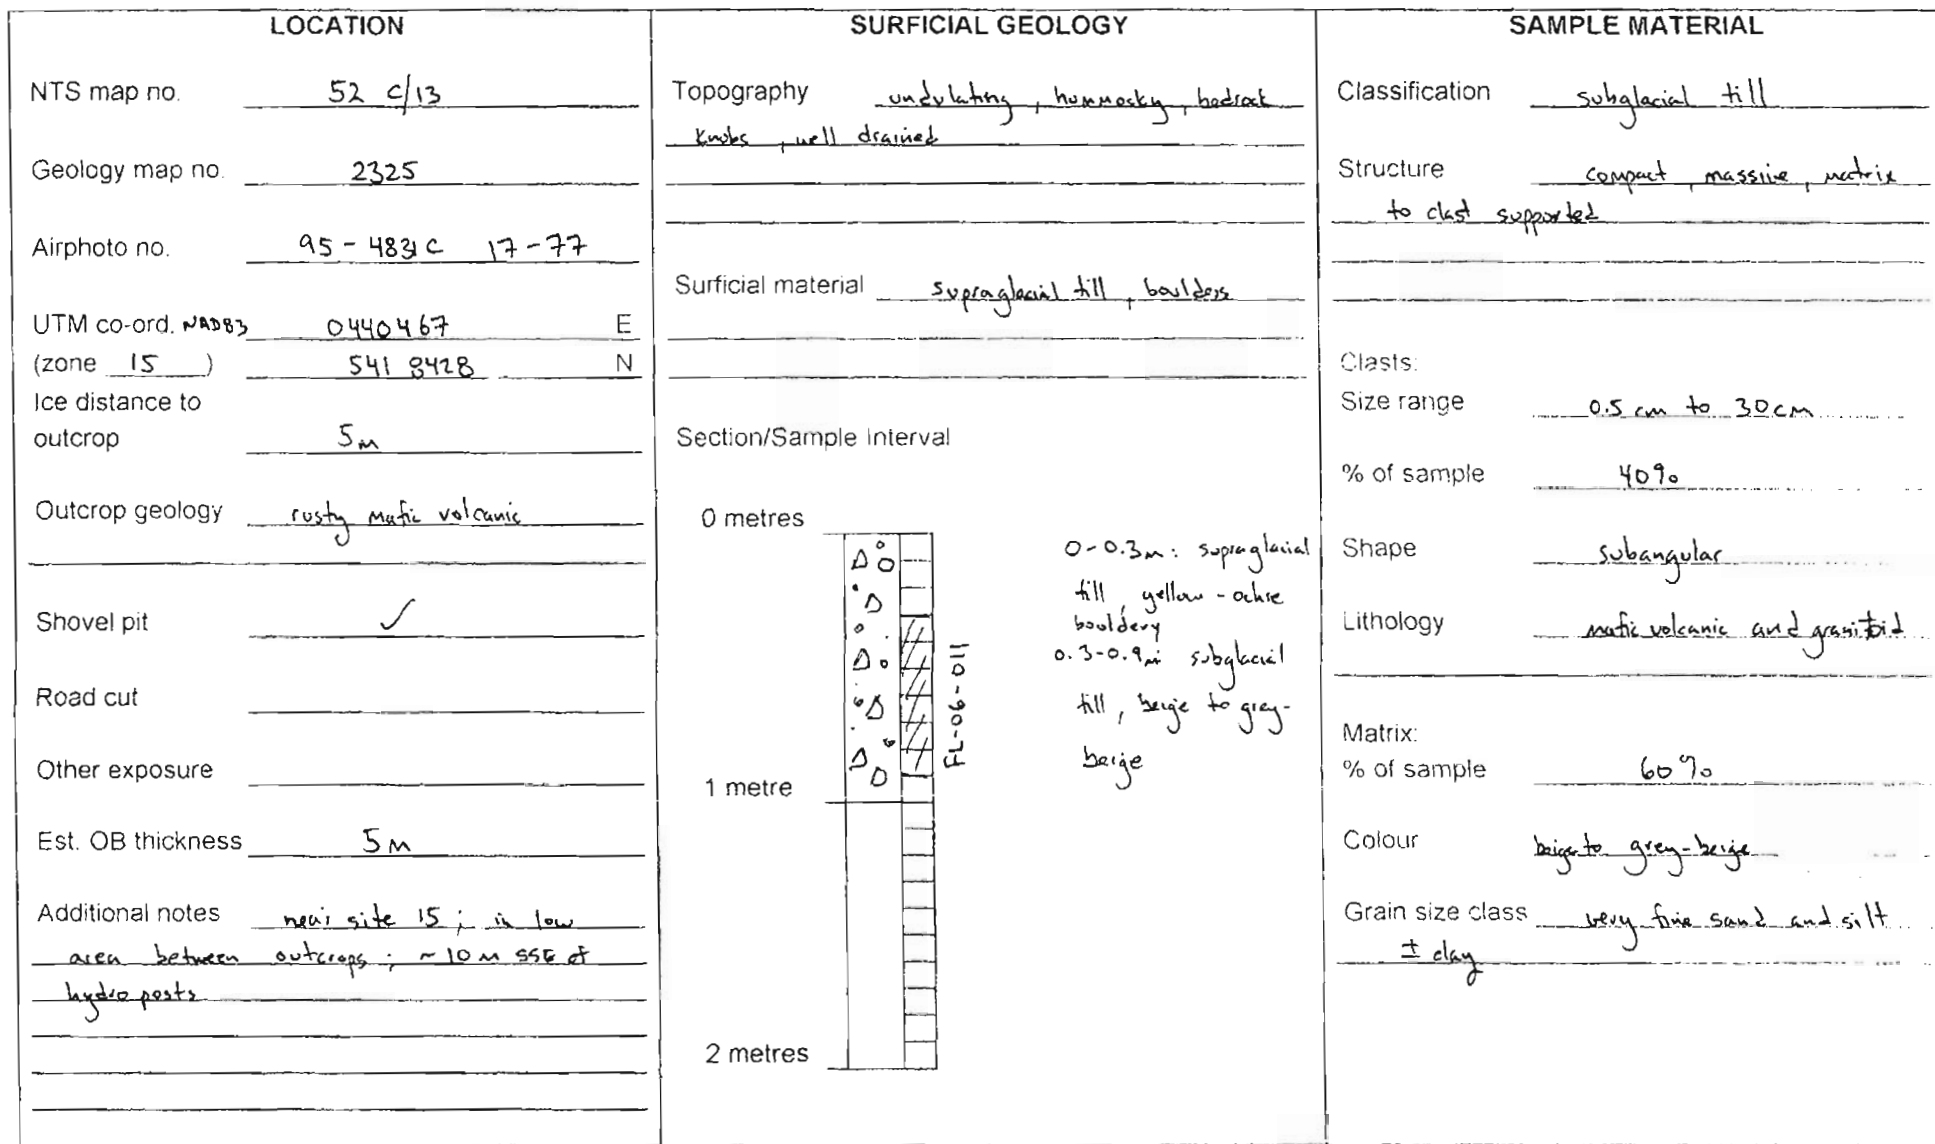 LOCATION
NTS map no. 52 C/13
Geology map no. 2325
Airphoto no. 95-4831C 17-77
UTM co-ord. NAD83 0440467 E
(zone 15) 541 8428 N
Ice distance to
outcrop 5m
Outcrop geology rusty mafic volcanic
Shovel pit ✓
Road cut
Other exposure
Est. OB thickness 5m
Additional notes near site 15; in low
area between outcrops; ~10m SSE of
hydro posts
SURFICIAL GEOLOGY
Topography undulating, hummosky, bedrock
knobs, well drained
Surficial material supraglacial till, boulders
Section/Sample Interval
0 metres
1 metre
2 metres
FL-06-011
0-0.3m: supraglacial
till, yellow-ochre
bouldery
0.3-0.9m: subglacial
till, beige to grey-
beige
SAMPLE MATERIAL
Classification subglacial till
Structure compact, massive, matrix
to clast supported
Clasts:
Size range 0.5 cm to 30cm
% of sample 40%
Shape subangular
Lithology mafic volcanic and granitoid
Matrix:
% of sample 60%
Colour beige to grey-beige
Grain size class very fine sand and silt
± clay